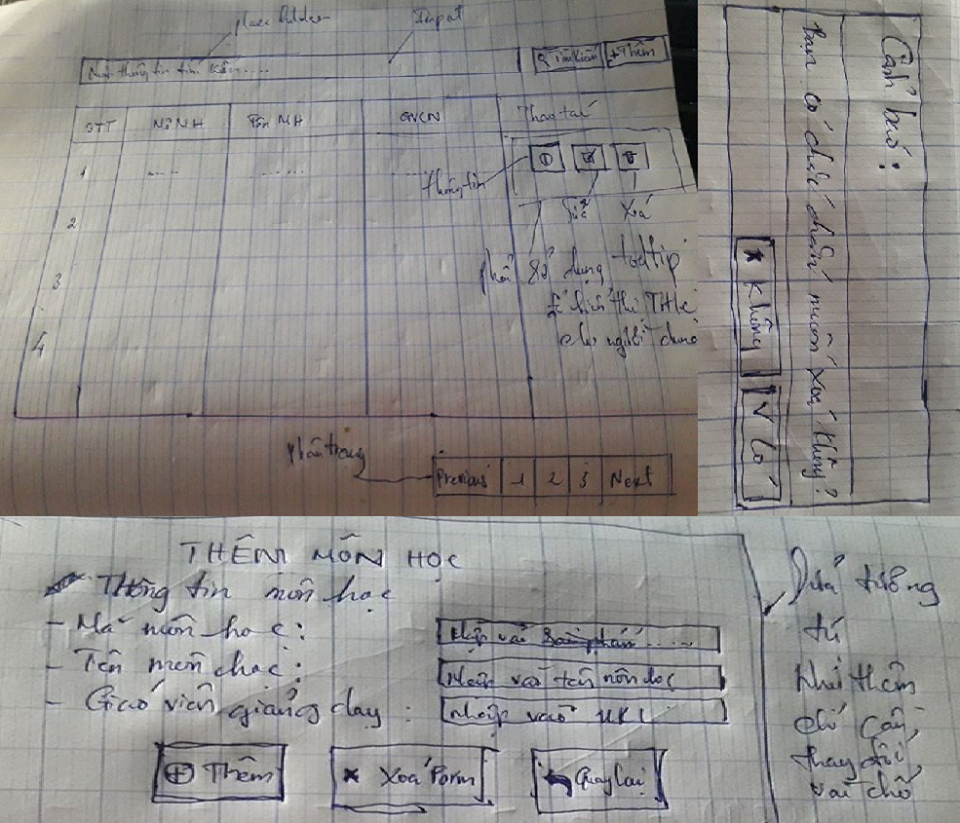 place holder
Input
Nhập thông tin tìm kiếm.....
Tìm kiếm
+ Thêm
STT
Mã MH
Tên MH
GVCN
Thao tác
1
thông tin
2
Sửa
Xoá
3
phải sử dụng tooltip
để hiển thị
4
cho người dùng
phân trang
Previous 1 2 3 Next
Cảnh báo:
Bạn có chắc chắn muốn xoá không?
× Không
✓ Có
THÊM MÔN HỌC
Thông tin môn học
- Mã môn học:
Nhập vào
- Tên môn học:
Nhập vào tên môn học
- Giáo viên giảng dạy:
Nhập vào
Thêm
× Xoá Form
Quay lại
Sửa tương
tự
khi thêm
chỉ cần
thay đổi
vài chỗ